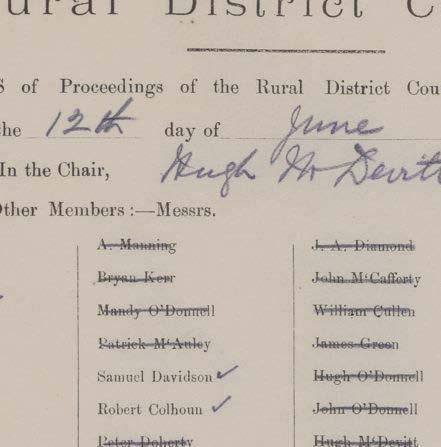 ural District C
S of Proceedings of the Rural District Cou
the 12th day of June
In the Chair, Hugh McDevitt
Other Members :—Messrs.
A. Manning J. A. Diamond
Bryan Kerr John M'Cafferty
Mandy O'Donnell William Cullen
Patrick M'Auley James Green
Samuel Davidson ✓ Hugh O'Donnell
Robert Colhoun ✓ John O'Donnell
Peter Doherty Hugh McDevitt